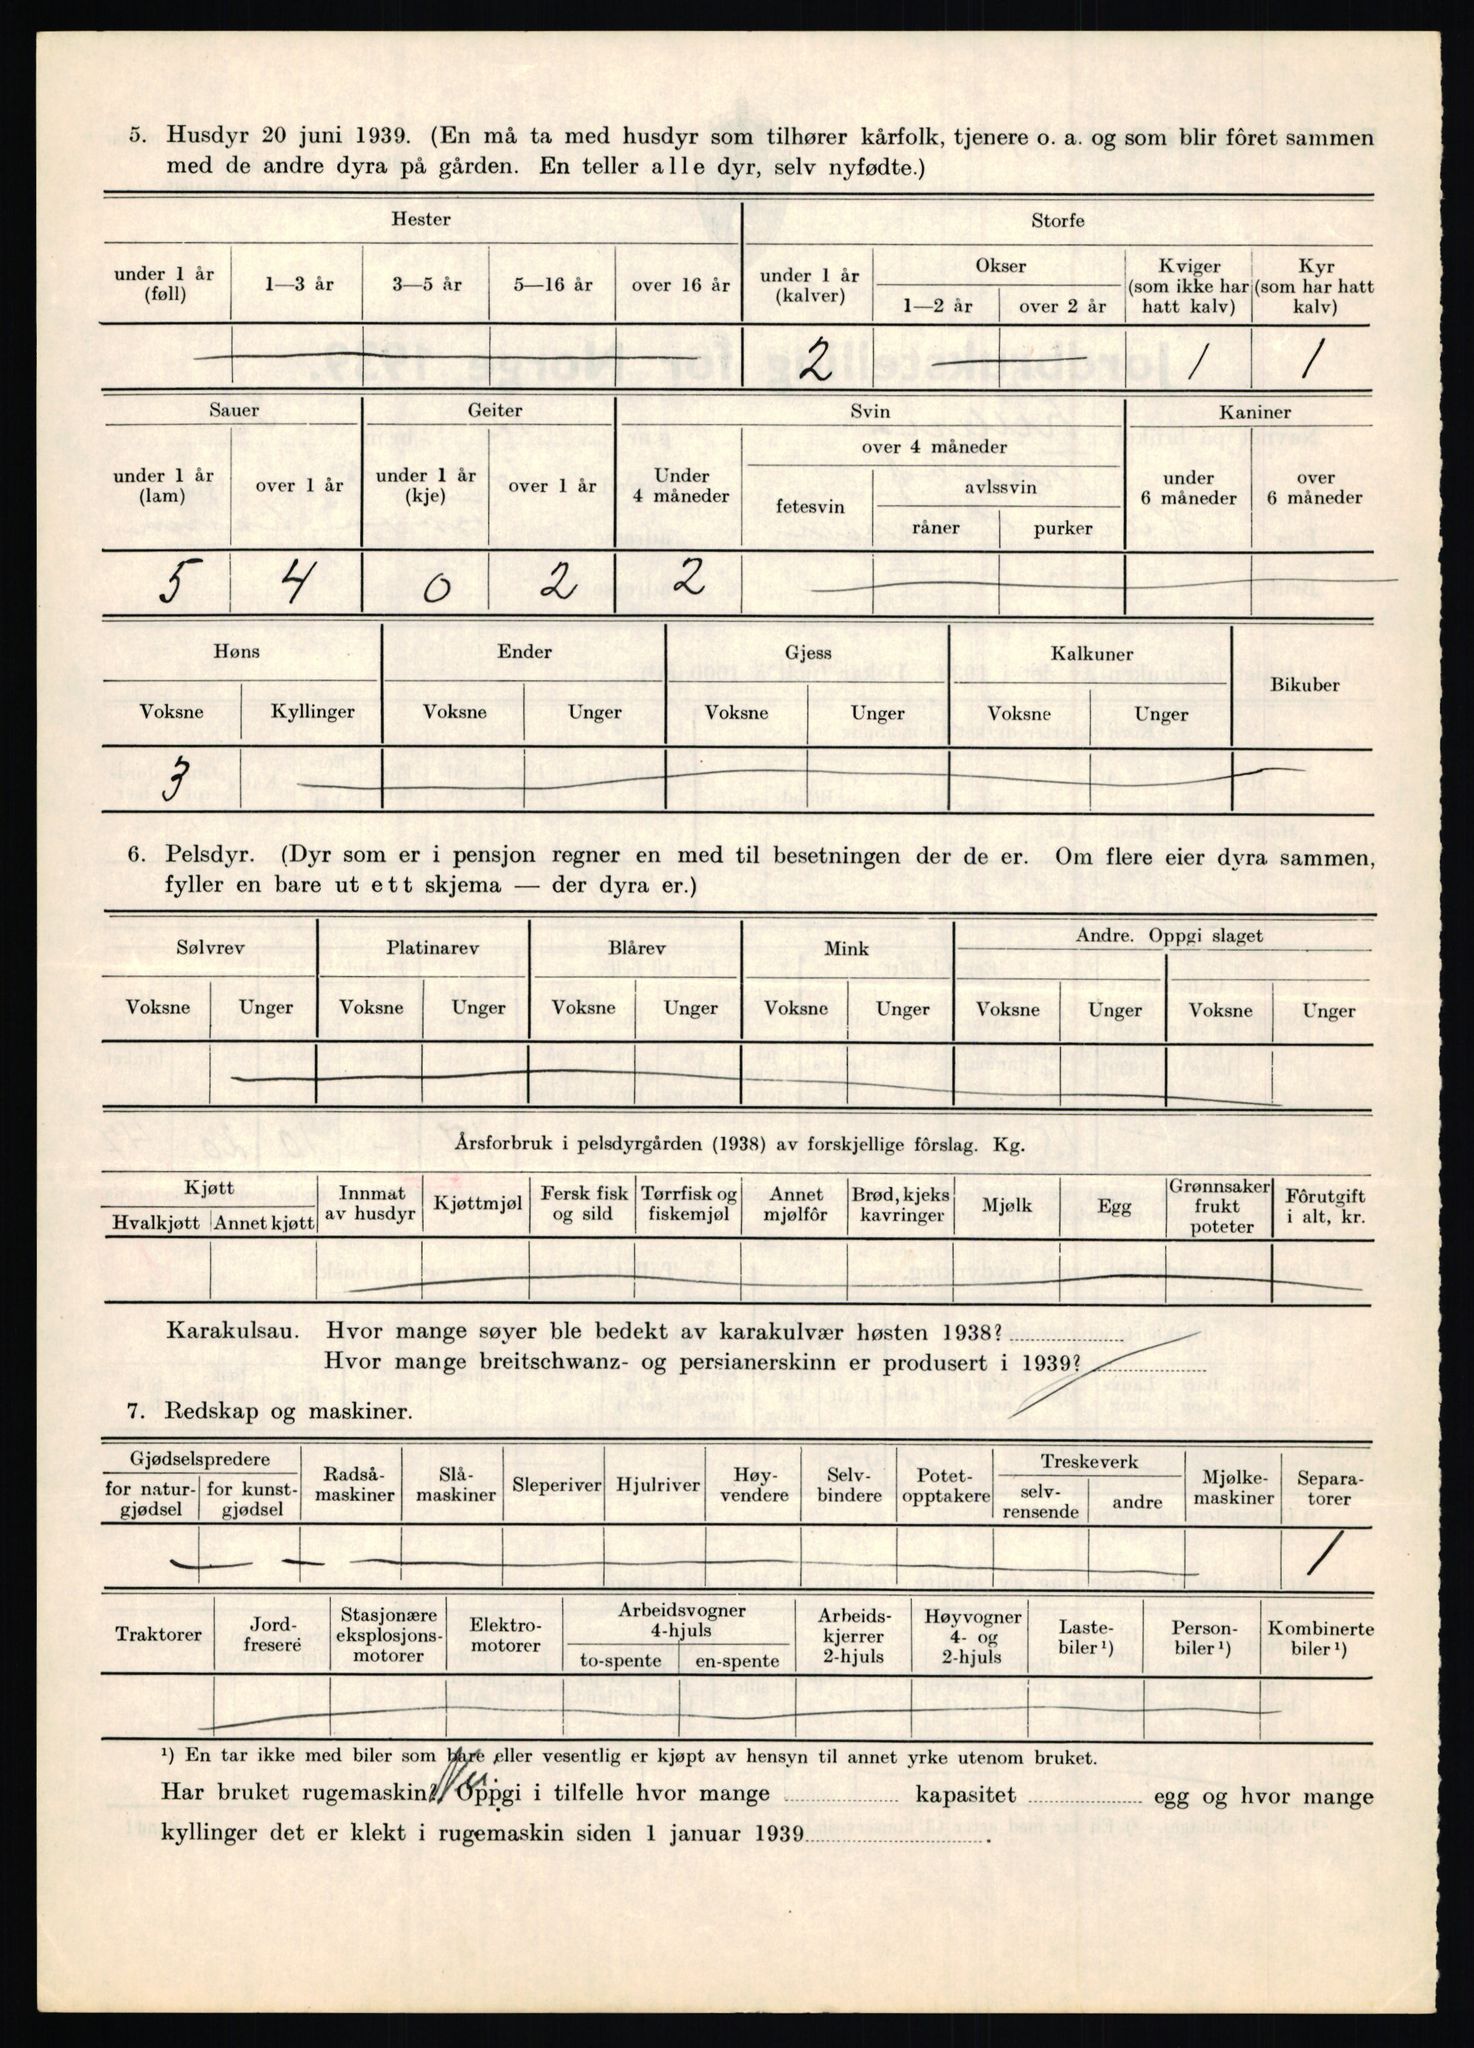 5. Husdyr 20 juni 1939. (En må ta med husdyr som tilhører kårfolk, tjenere o. a. og som blir fôret sammen
med de andre dyra på gården. En teller alle dyr, selv nyfødte.)
Hester Storfe
under 1 år (føll) 1—3 år 3—5 år 5—16 år over 16 år under 1 år (kalver) Okser Kviger (som ikke har hatt kalv) Kyr (som har hatt kalv)
1—2 år over 2 år
2 1 1
Sauer Geiter Svin Kaniner
under 1 år (lam) over 1 år under 1 år (kje) over 1 år Under 4 måneder over 4 måneder under 6 måneder over 6 måneder
fetesvin avlssvin
råner purker
5 4 0 2 2
Høns Ender Gjess Kalkuner Bikuber
Voksne Kyllinger Voksne Unger Voksne Unger Voksne Unger
3
6. Pelsdyr. (Dyr som er i pensjon regner en med til besetningen der de er. Om flere eier dyra sammen,
fyller en bare ut ett skjema — der dyra er.)
Sølvrev Platinarev Blårev Mink Andre. Oppgi slaget
Voksne Unger Voksne Unger Voksne Unger Voksne Unger Voksne Unger Voksne Unger
Årsforbruk i pelsdyrgården (1938) av forskjellige fôrslag. Kg.
Kjøtt Innmat av husdyr Kjøttmjøl Fersk fisk og sild Tørrfisk og fiskemjøl Annet mjølfôr Brød, kjeks kavringer Mjølk Egg Grønnsaker frukt poteter Fôrutgift i alt, kr.
Hvalkjøtt Annet kjøtt
Karakulsau. Hvor mange søyer ble bedekt av karakulvær høsten 1938?
Hvor mange breitschwanz- og persianerskinn er produsert i 1939?
7. Redskap og maskiner.
Gjødselspredere Radså- maskiner Slå- maskiner Sleperiver Hjulriver Høy- vendere Selv- bindere Potet- opptakere Treskeverk Mjølke- maskiner Separa- torer
for natur- gjødsel for kunst- gjødsel selv- rensende andre
1
Traktorer Jord- fresere Stasjonære eksplosjons- motorer Elektro- motorer Arbeidsvogner 4-hjuls Arbeids- kjerrer 2-hjuls Høyvogner 4- og 2-hjuls Laste- biler ¹) Person- biler ¹) Kombinerte biler ¹)
to-spente en-spente
¹) En tar ikke med biler som bare eller vesentlig er kjøpt av hensyn til annet yrke utenom bruket.
Har bruket rugemaskin? Oppgi i tilfelle hvor mange kapasitet egg og hvor mange
kyllinger det er klekt i rugemaskin siden 1 januar 1939 .